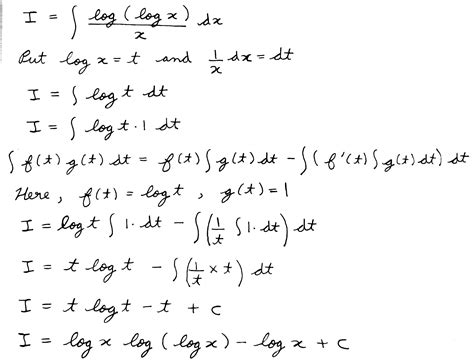 I = ∫ log (log x) / x dx
Put log x = t and 1/x dx = dt
I = ∫ log t dt
I = ∫ log t · 1 dt
∫ f(t) g(t) dt = f(t) ∫ g(t) dt − ∫ (f'(t) ∫ g(t) dt) dt
Here, f(t) = log t, g(t) = 1
I = log t ∫ 1· dt − ∫ (1/t ∫ 1· dt) dt
I = t log t − ∫ (1/t × t) dt
I = t log t − t + c
I = log x log (log x) − log x + c